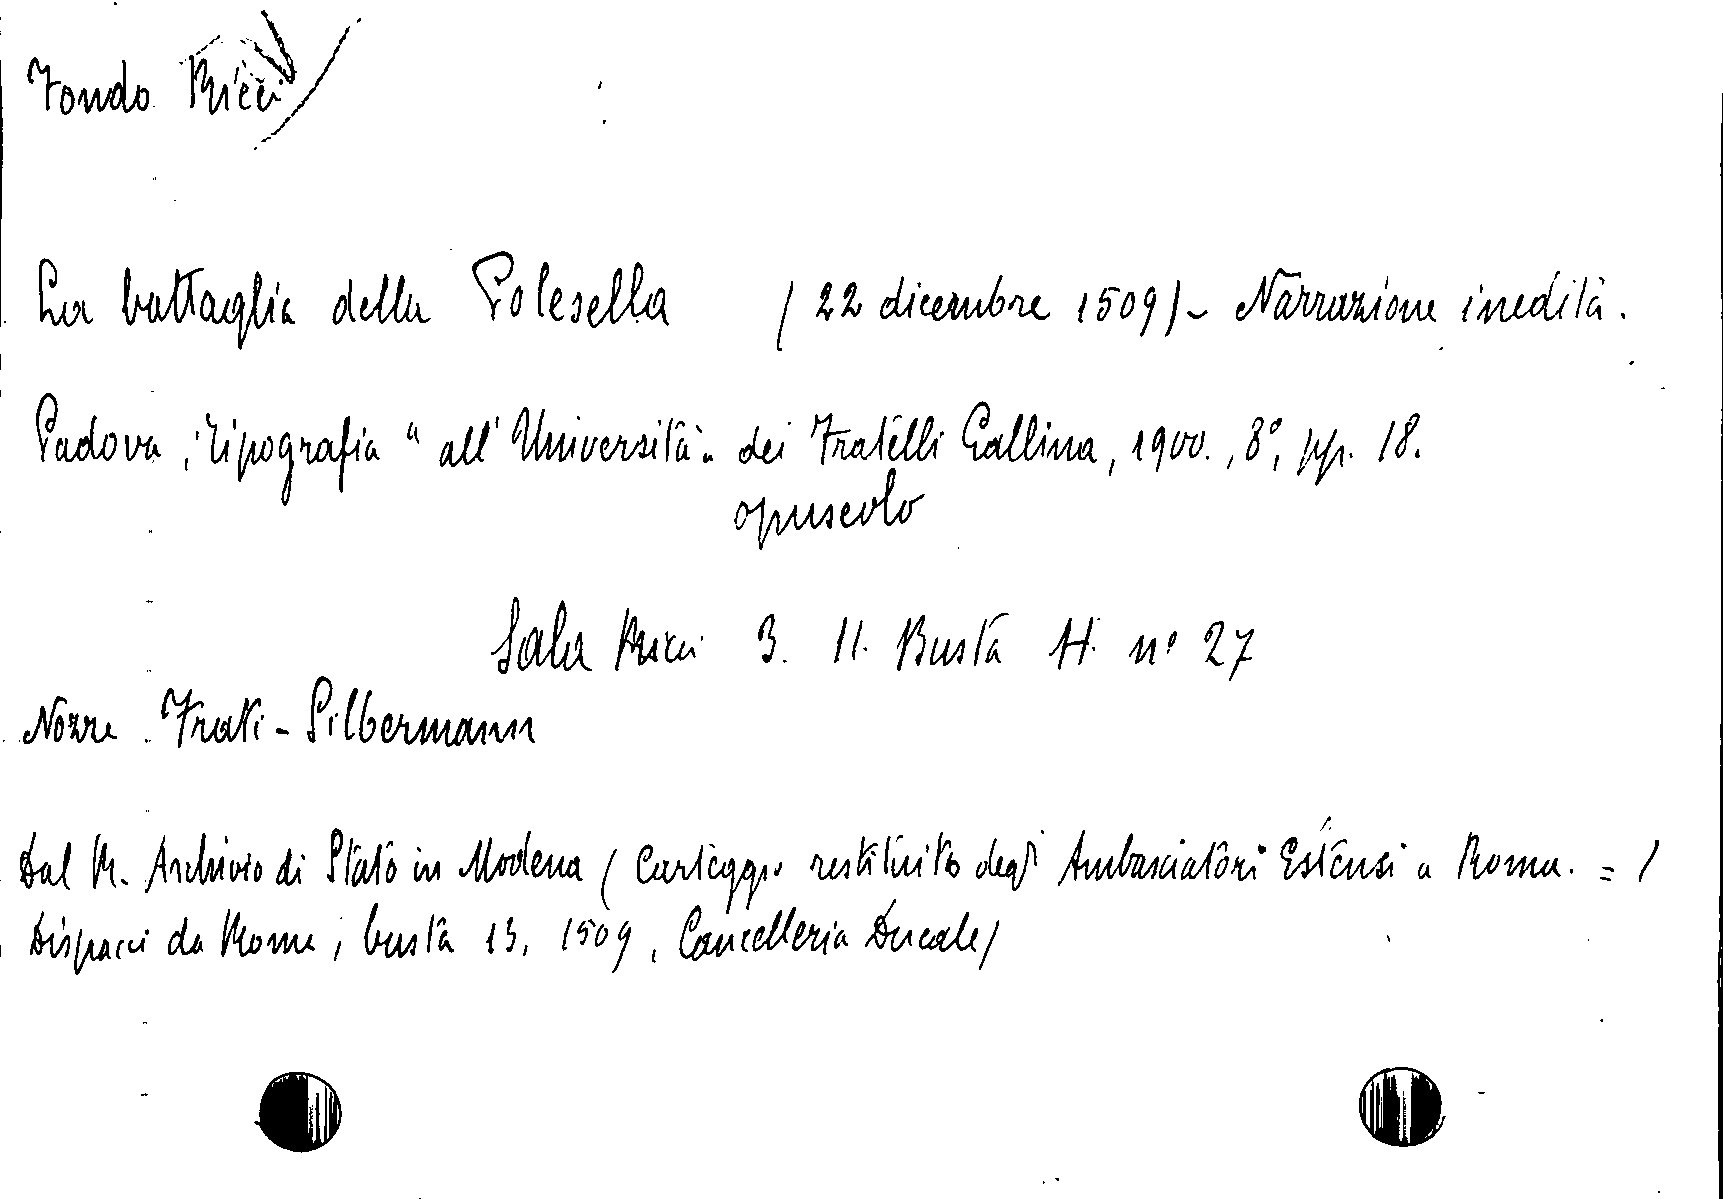 Fondo Ricci
La battaglia della Polesella (22 dicembre 1509) - Narrazione inedita.
Padova, Tipografia "all'Università" dei Fratelli Gallina, 1900., 8°, pp. 18.
opuscolo
Sala Ricci 3. 11. Busta H. n° 27
Nozze Frati - Silbermann
Dal R. Archivio di Stato in Modena (Carteggio restituito degli Ambasciatori Estensi a Roma. = /
Dispacci da Roma, busta 13, 1509, Cancelleria Ducale)